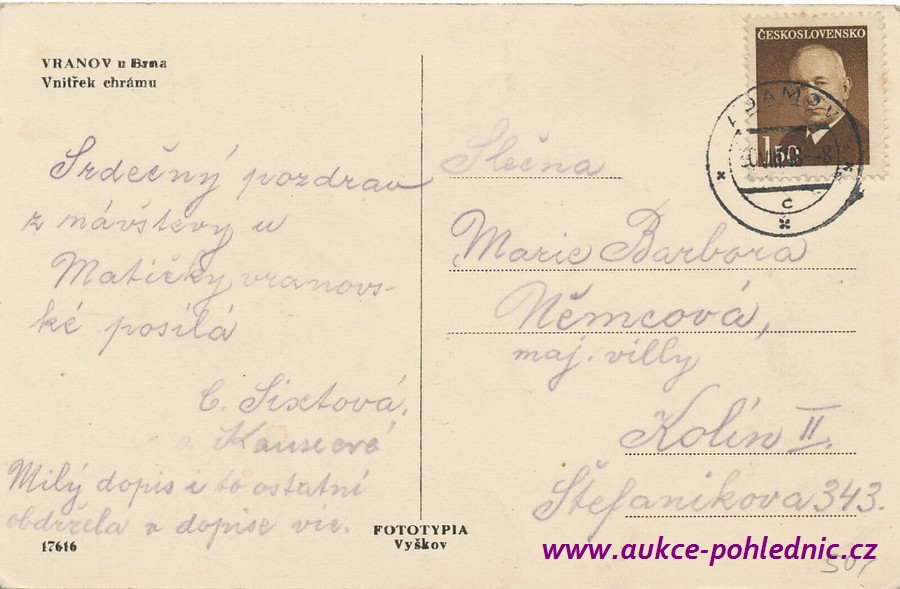 VRANOV u Brna
Vnitřek chrámu
Srdečný pozdrav
z návštevy u
Matičky vranovs-
ké posílá
C. Sixtová,
a
Milý dopis i to ostatní
obdržela v dopise víc.
17616
FOTOTYPIA
Vyškov
ČESKOSLOVENSKO
1.50
ADAMOV
c
Slečna
Marie Barbora
Němcová,
maj. villy
Kolín II.
Štefanikova 343.
501
www.aukce-pohlednic.cz